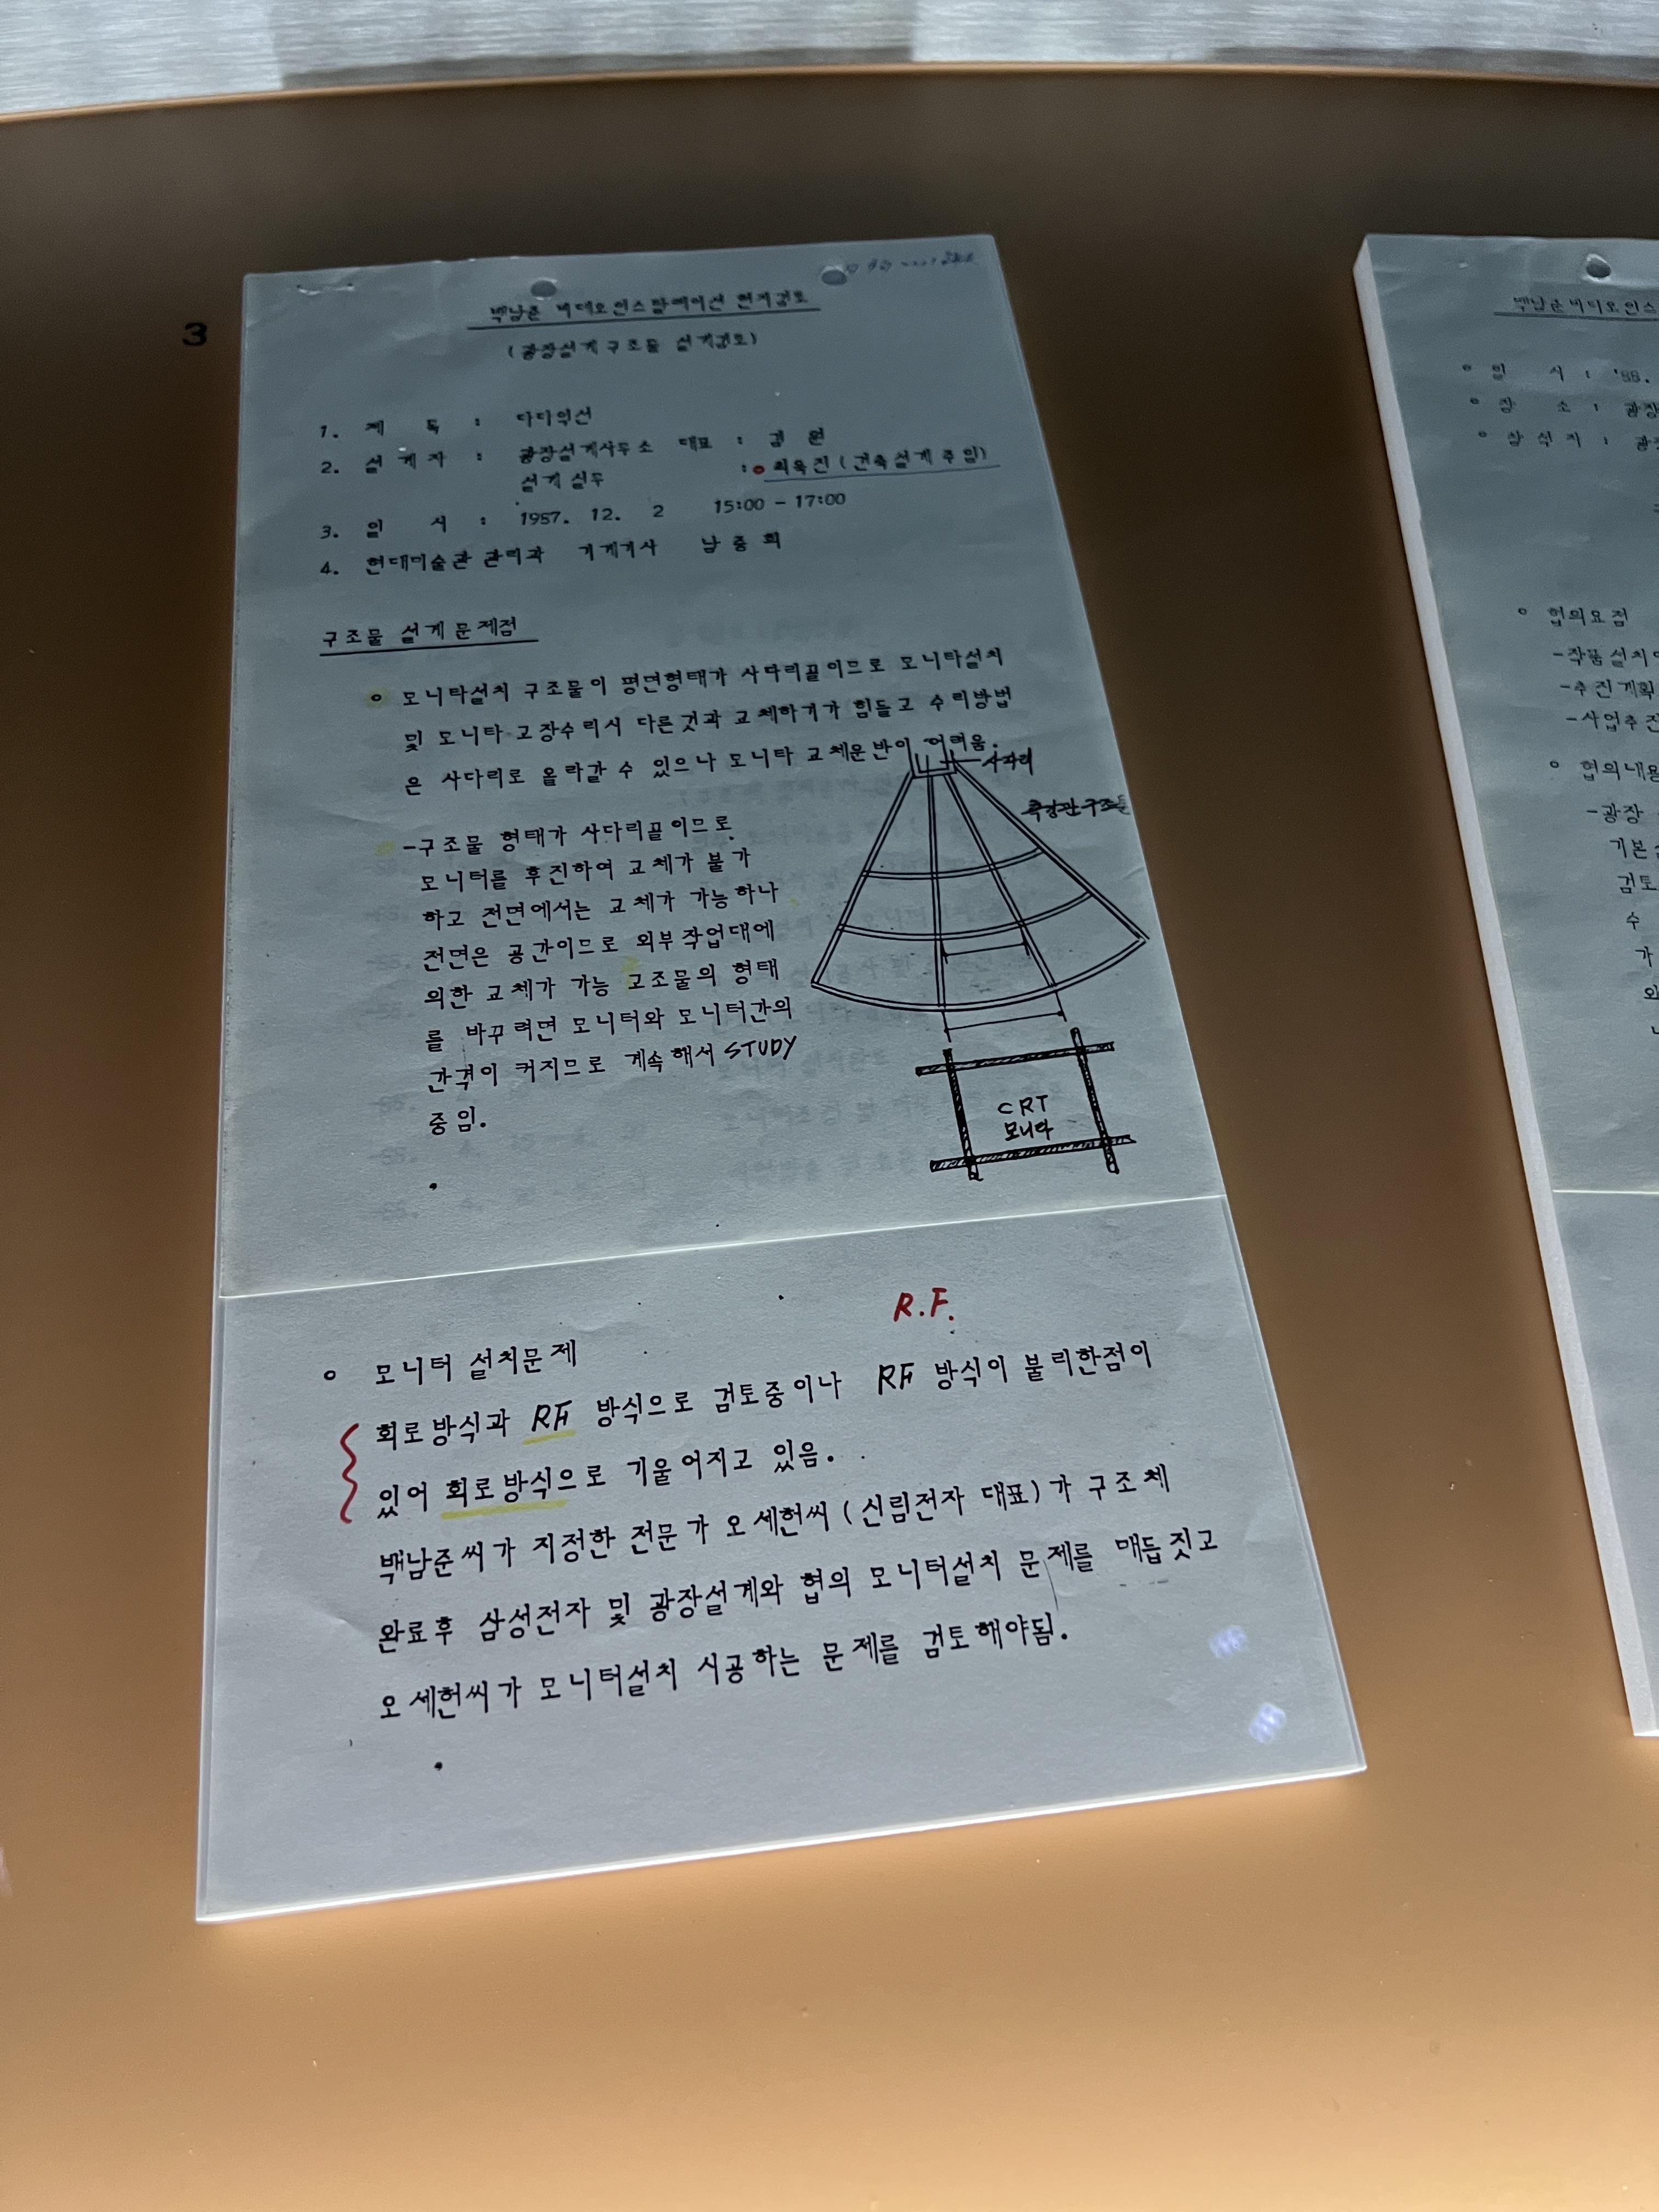 3
백남준 비데오인스탈레이션 현지검토
(광장설계구조물 설계검토)
1. 제 목 : 다다익선
2. 설 계 자 : 광장설계사무소 대표 : 김 원
설계실무 : 최욱진 (건축설계주임)
3. 일 시 : 1987. 12. 2 15:00 - 17:00
4. 현대미술관 관리과 기계기사 남중희
구조물 설계문제점
o 모니타설치 구조물이 평면형태가 사다리꼴이므로 모니타설치
및 모니타 고장수리시 다른것과 교체하기가 힘들고 수리방법
은 사다리로 올라갈 수 있으나 모니타 교체운반이 어려움.
사다리
구조물
-구조물 형태가 사다리꼴이므로
모니터를 후진하여 교체가 불가
하고 전면에서는 교체가 가능하나
전면은 공간이므로 외부작업대에
의한 교체가 가능 구조물의 형태
를 바꾸려면 모니터와 모니터간의
간격이 커지므로 계속해서 STUDY
중임.
CRT
모니타
R.F.
o 모니터 설치문제
회로방식과 RF 방식으로 검토중이나 RF 방식이 불리한점이
있어 회로방식으로 기울어지고 있음.
백남준씨가 지정한 전문가 오세헌씨 (신림전자 대표)가 구조체
완료후 삼성전자 및 광장설계와 협의 모니터설치 문제를 매듭짓고
오세헌씨가 모니터설치 시공하는 문제를 검토해야됨.
백남준비데오인스
o 일 시 : '88.
o 장 소 : 광장
o 참석자 : 광
o 협의요점
-작품설치
-추진계획
-사업추진
o 협의내용
-광장
기본
검토
수
가